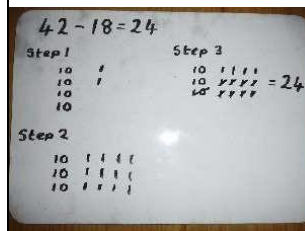 42-18=24
Step 1
10 |
10 |
10
10
Step 2
10 | | | |
10 | | | |
10 | | | |
Step 3
10 | | | |
10 | | | |
10 | | | | = 24